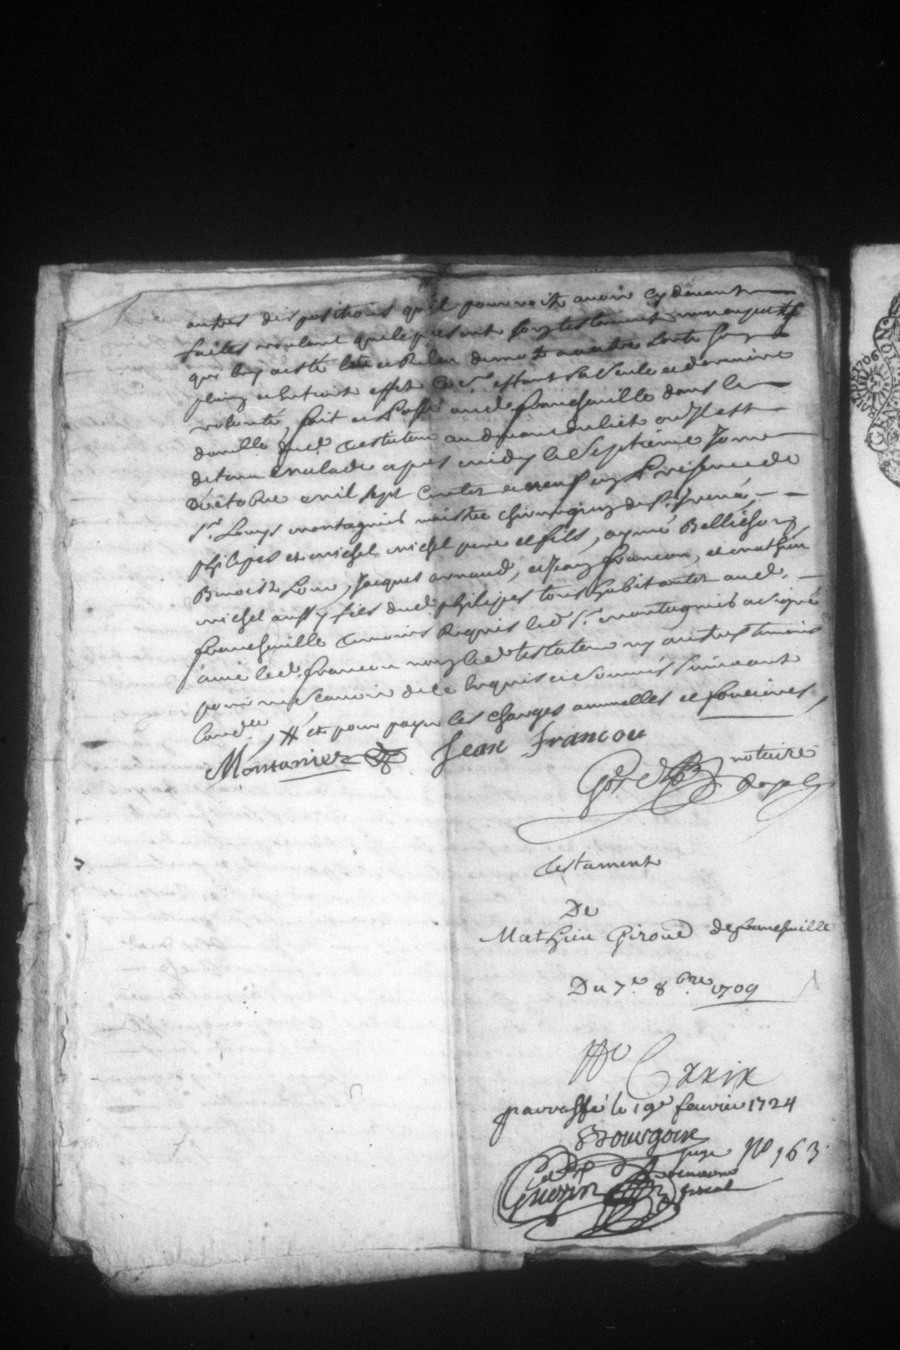 autres dispositions qu'il pourroit avoir cy devant
faites voulant que le present son testament
qui luy a esté leu et Releu de mot a autre sorte son
plain et entier effet Ce estant sa seule et derniere
volonté, fait et Passé aud. francheville dans le
domille dud. testateur au devant du lict ou Il est
detenu malade apres midy le Septieme Jour
D'octobre mil sept Centz et neuf en Presence de
Sr. Louys montagnier maistre chirurgien de St. Irené,
philipes et michel michel pere et fils, aymé Bellichon,
Benoist Loire, Jacques arnaud, et Jean francou, et mathieu
michel aussy fils dud. philipes tous habitants aud.
francheville temoins Requis led. Sr. montagnier a signé
avec led. francou non led. testateur ny autres temoins
pour ne scavoir de ce enquis et sommés suivant
lord.ce # et pour payer les charges annuelles et foncieres,
Montanier Jean Francou
notaire
Royal
testament
De
Mathieu Giroud de francheville
Du 7e 8bre 1709
No Cxxix
parraffé le 19e feuvrier 1724
Bourgoin
juge No 163.
Guerrin
fiscal